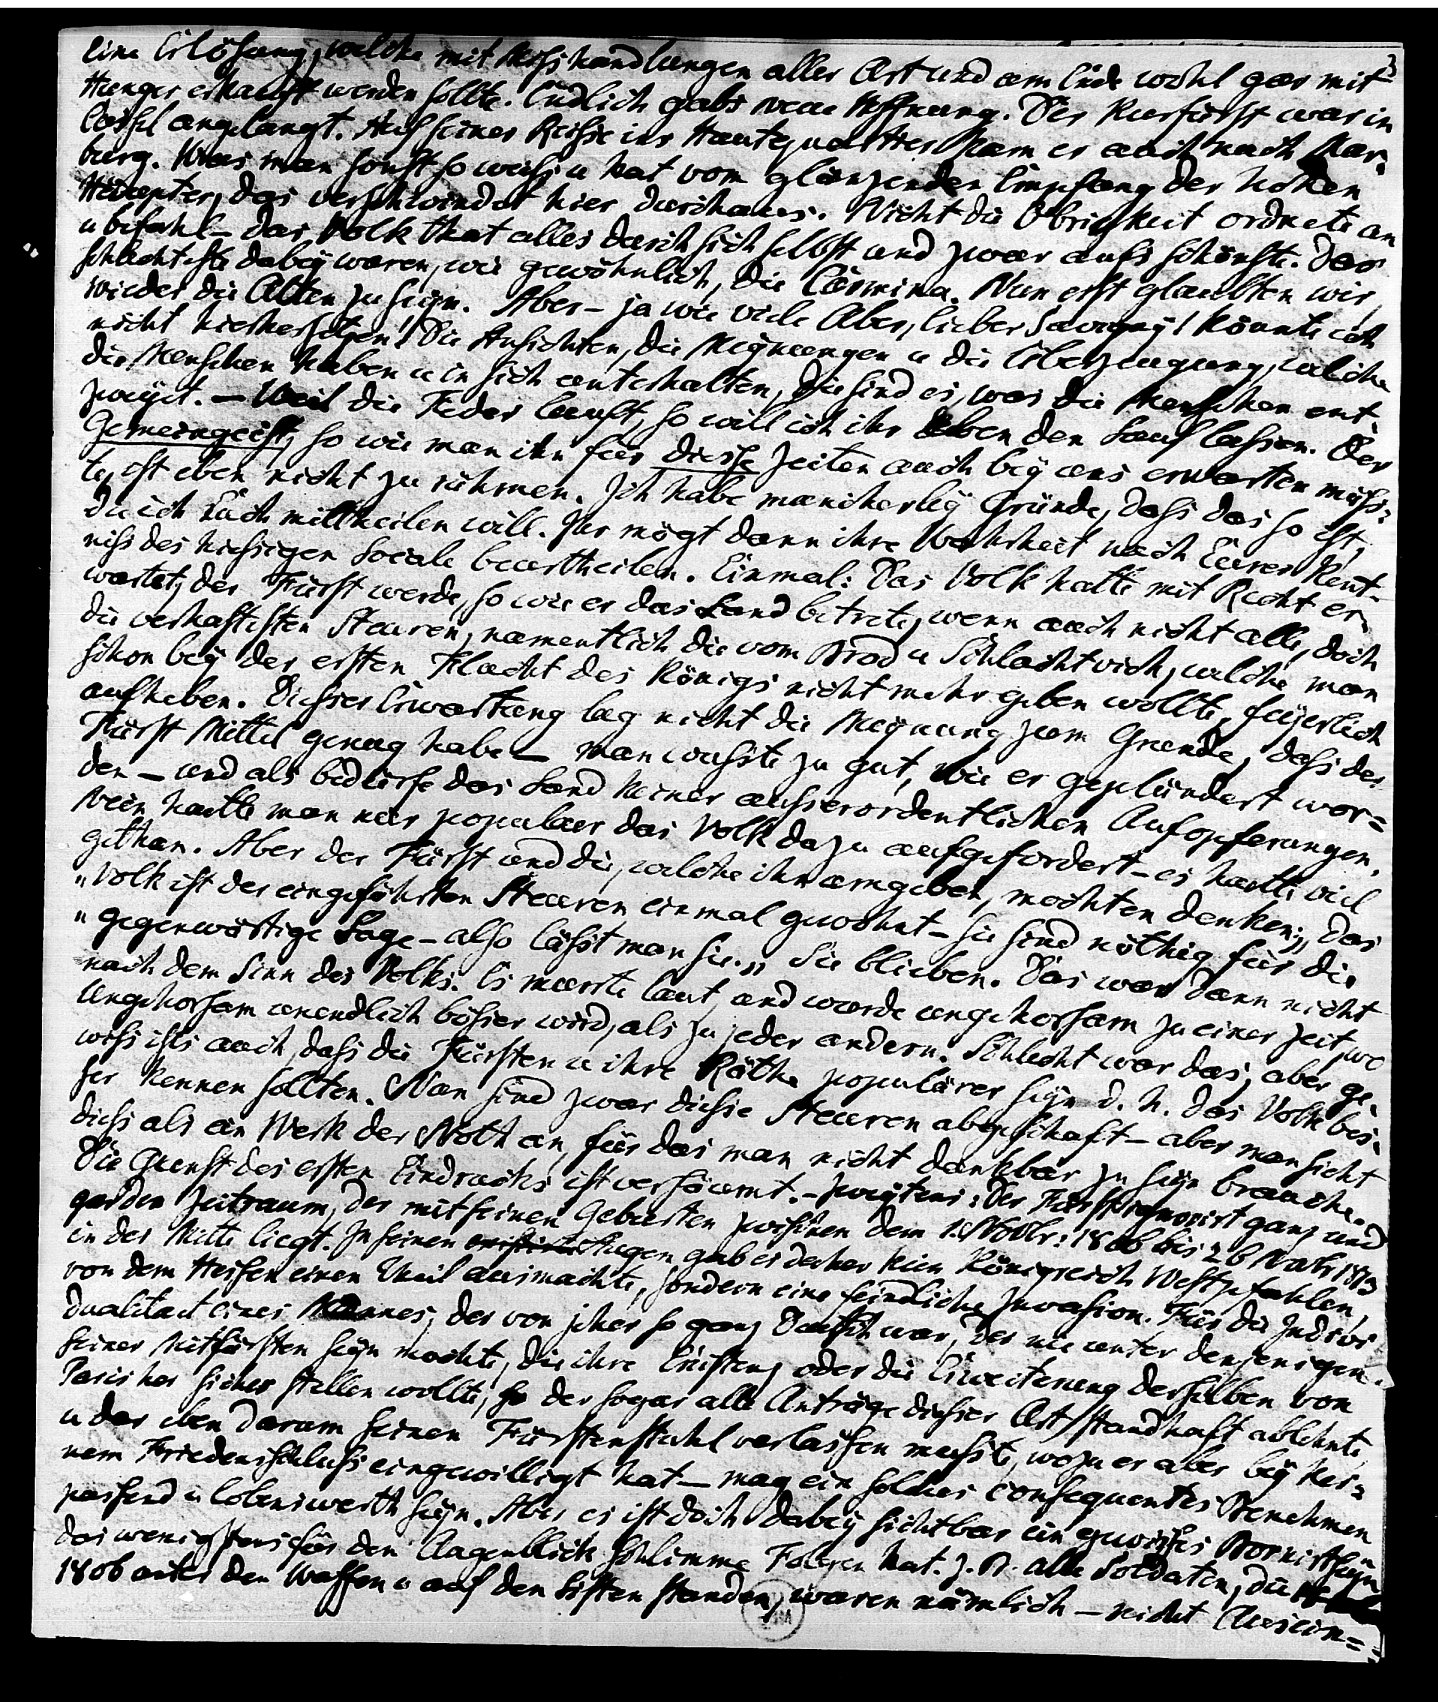 3
eine Erlösung, welche mit Misshandlungen aller Art und am Ende wohl gar mit
Hunger erkauft werden sollte. Endlich gabs neue Hoffnung. Der Kurfürst war in
Cassel angelangt. Auf seiner Reise ins Hautquartier kam er auch nach Mar-
burg. Was man sonst so weiss u hat vom glänzenden Empfang der hohen
Häupter, das verschwindet hier durchaus. Nicht die Obrigkeit ordnete an
u befahl – das Volk that alles durch sich selbst und zwar aufs schönste. Das
schlechteste dabey waren, wie gewöhnlich, die Carmina. Nun erst glaubten wir,
wieder die Alten zu seyn. Aber – ja wie viele Aber, lieber Savigny! könnte ich
nicht hierhersetzen! Die Ansichten, die Meynungen u die Ueberzeugung, welche
die Menschen haben u in sich unterhalten, die sind es, was die Menschen ent-
zweyt. – Weil die Feder lauft, so will ich ihr eben den Lauf lassen. Der
Gemeingeist, so wie man ihn für diese Zeiten auch bey uns erwarten müss-
te, ist eben nicht zu rühmen. Ich habe mancherley Gründe, dass das so ist,
die ich Euch mittheilen will. Ihr mögt dann ihre Wahrheit nach Eurer Kent-
niss des hiesigen Locale beurtheilen. Einmal: Das Volk hatte mit Recht er-
wartet, der Fürst werde, so wie er das Land betrete, wenn auch nicht alle, doch
die verhasstesten Steuren, namentlich die vom Brod u Schlachtvieh, welche man
schon bey der ersten Flucht des Königs nicht mehr geben wollte, feyerlich
aufheben. Dieser Erwartung lag nicht die Meynung zum Grunde, dass der
Fürst Mittel genug habe – man wusste zu gut, wie er geplündert wor=
den – und als bedürfe das Land keiner ausserordentlichen Aufopferungen.
Nein hätte man nur populaer das Volk dazu aufgefordert – es hätte viel
gethan. Aber der Fürst und die, welche ihn umgeben, mochten denken: „Das
"Volk ist der eingeführten Steuren einmal gewohnt – sie sind nöthig für die
"gegenwärtige Lage – also lässt man sie.„ Sie blieben. Das war dann nicht
nach dem Sinn des Volks. Es murrte laut, und wurde ungehorsam zu einer Zeit, wo
Ungehorsam unendlich böser wird, als zu jeder andern. Schlecht war das, aber ge-
wiss ists auch, dass die Fürsten u ihre Räthe populärer seyn d. h. das Volk bes-
ser kennen sollten. Nun sind zwar diese Steuren abgeschaft – aber man sieht
diess als ein Werk der Noth an, für das man nicht dankbar zu seyn brauche.
Die Gunst des ersten Eindrucks ist versäumt. – Zweytens: Der Fürst ignorirt ganz und
gar den Zeitraum, der mit seinen Geburten zwischen dem 1. Novbr: 1806 bis 26 Novbr 1813
in der Mitte liegt. In seinen Augen gab es daher kein Königreich Westphalen,
von dem Hessen einen Theil ausmachte, sondern eine feindliche Invasion. Für die Indivi
dualitaet eines Mannes, der von jeher so ganz Deutsch war, der nie unter denjenigen
seiner Mitfürsten seyn mochte, die ihre Existenz oder die Erweiterung derselben von
Paris her sicher stellen wollte, so der sogar alle Anträge dieser Art standhaft ablehnte,
u der eben darum seinen Fürstenstuhl verlassen musste, wozu er aber bey kei-
nem Friedensschluss eingewilligt hat – mag ein solches consequentes Benehmen
passend u lobenswerth seyn. Aber es ist doch dabey sichtbar ein gewisses Bornirtseyn,
das wenigstens für den Augenblick schlimme Folgen hat. z. B. alle Soldaten, die
1806 unter den Waffen u auf den Listen standen, waren nämlich – nicht Ausein=